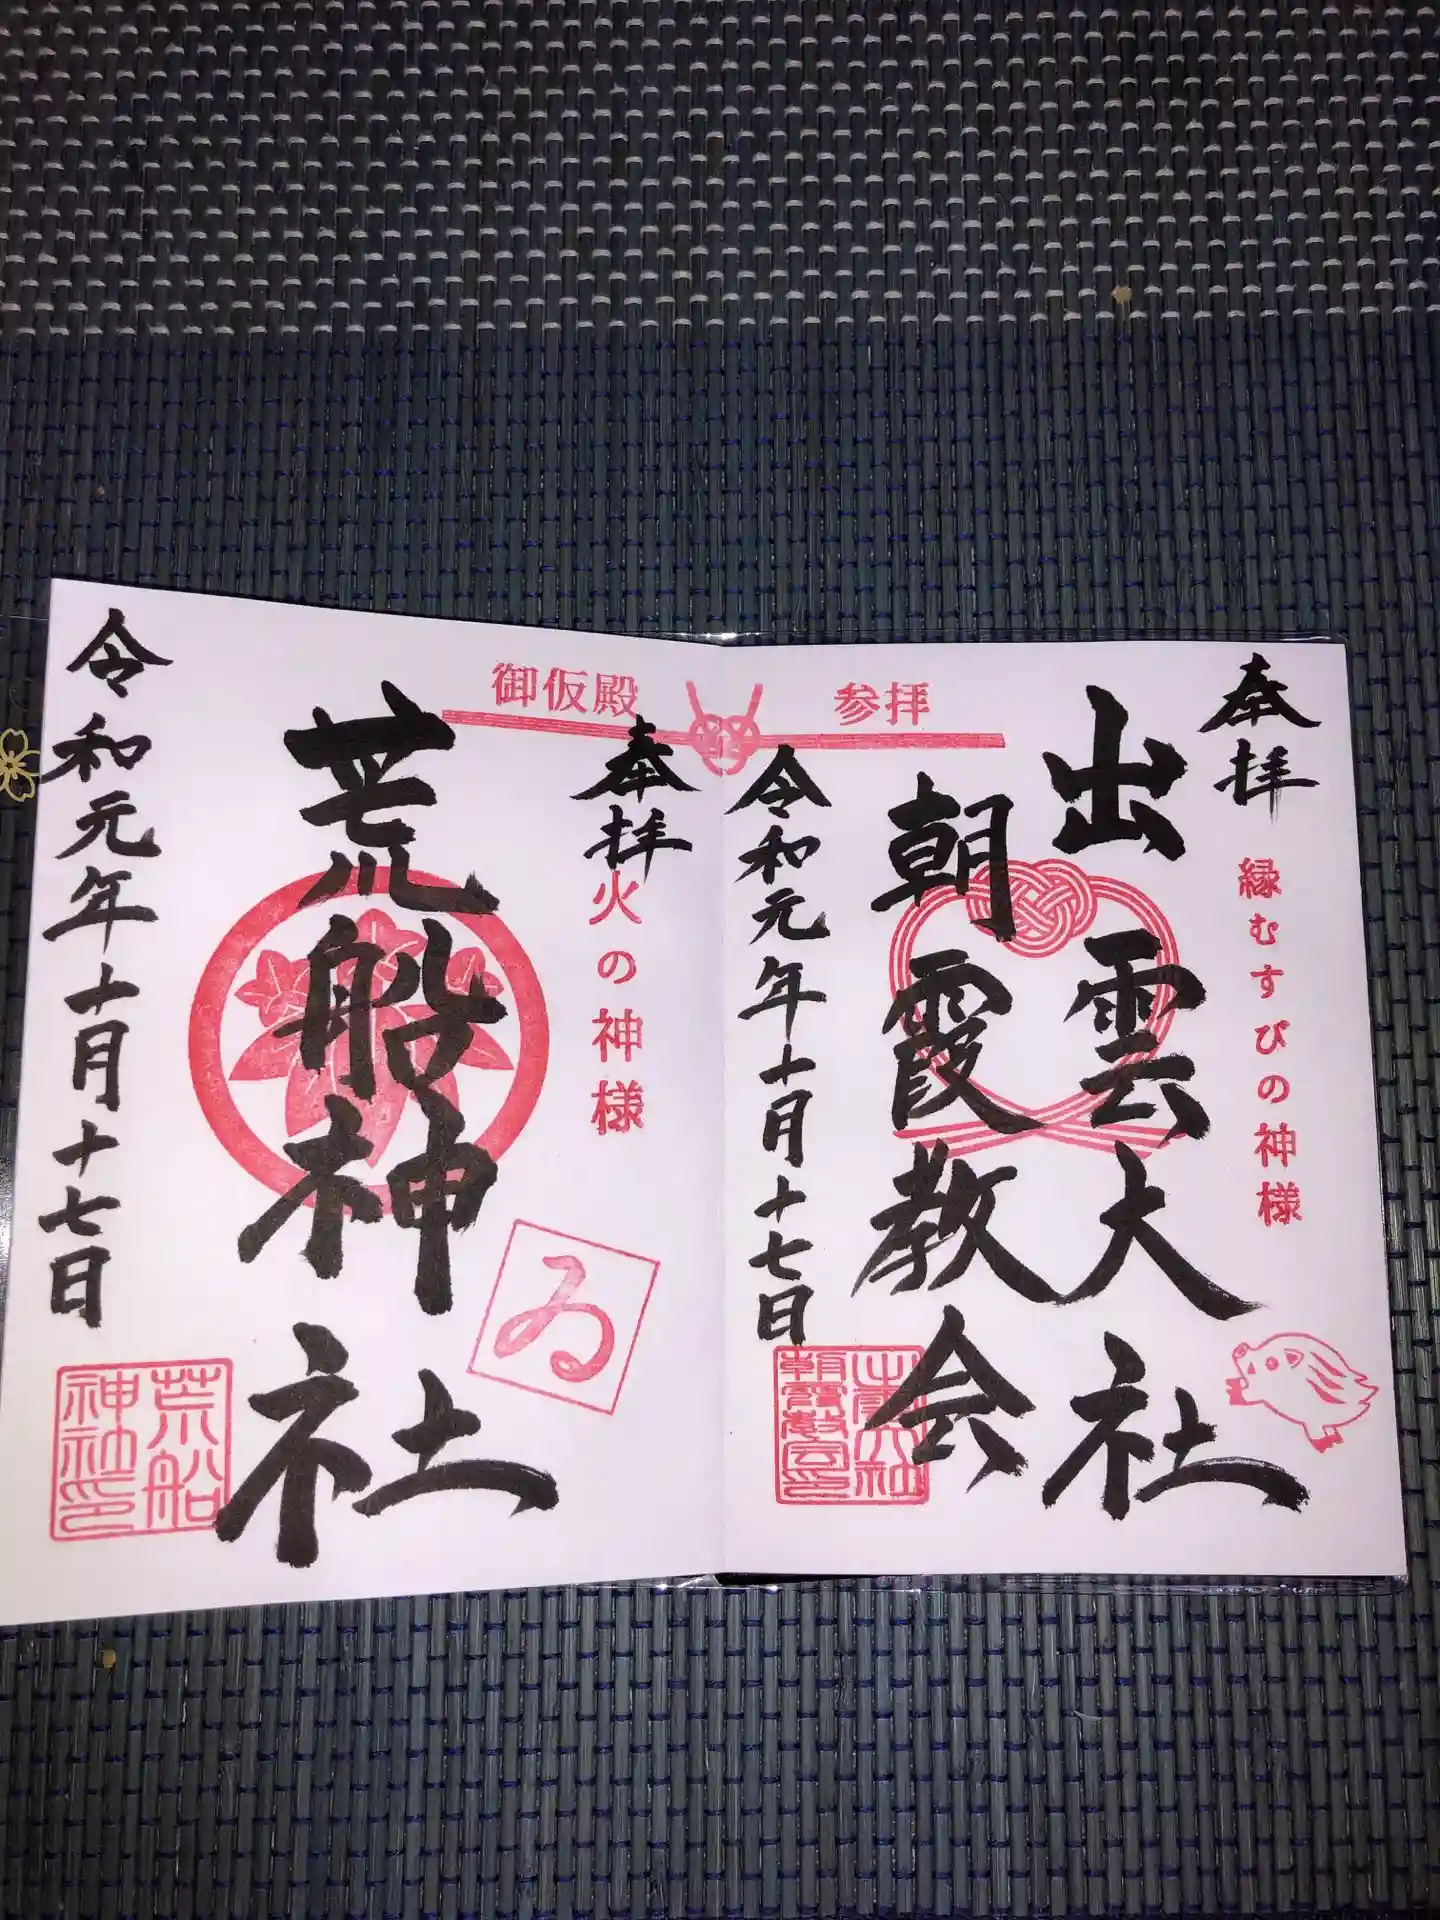 奉拝
縁むすびの神様
出雲大社
朝霞教会
令和元年十月十七日
出雲大社
朝霞教会印
御仮殿 参拝
奉拝
火の神様
荒船神社
ゐ
令和元年十月十七日
荒船
神社印